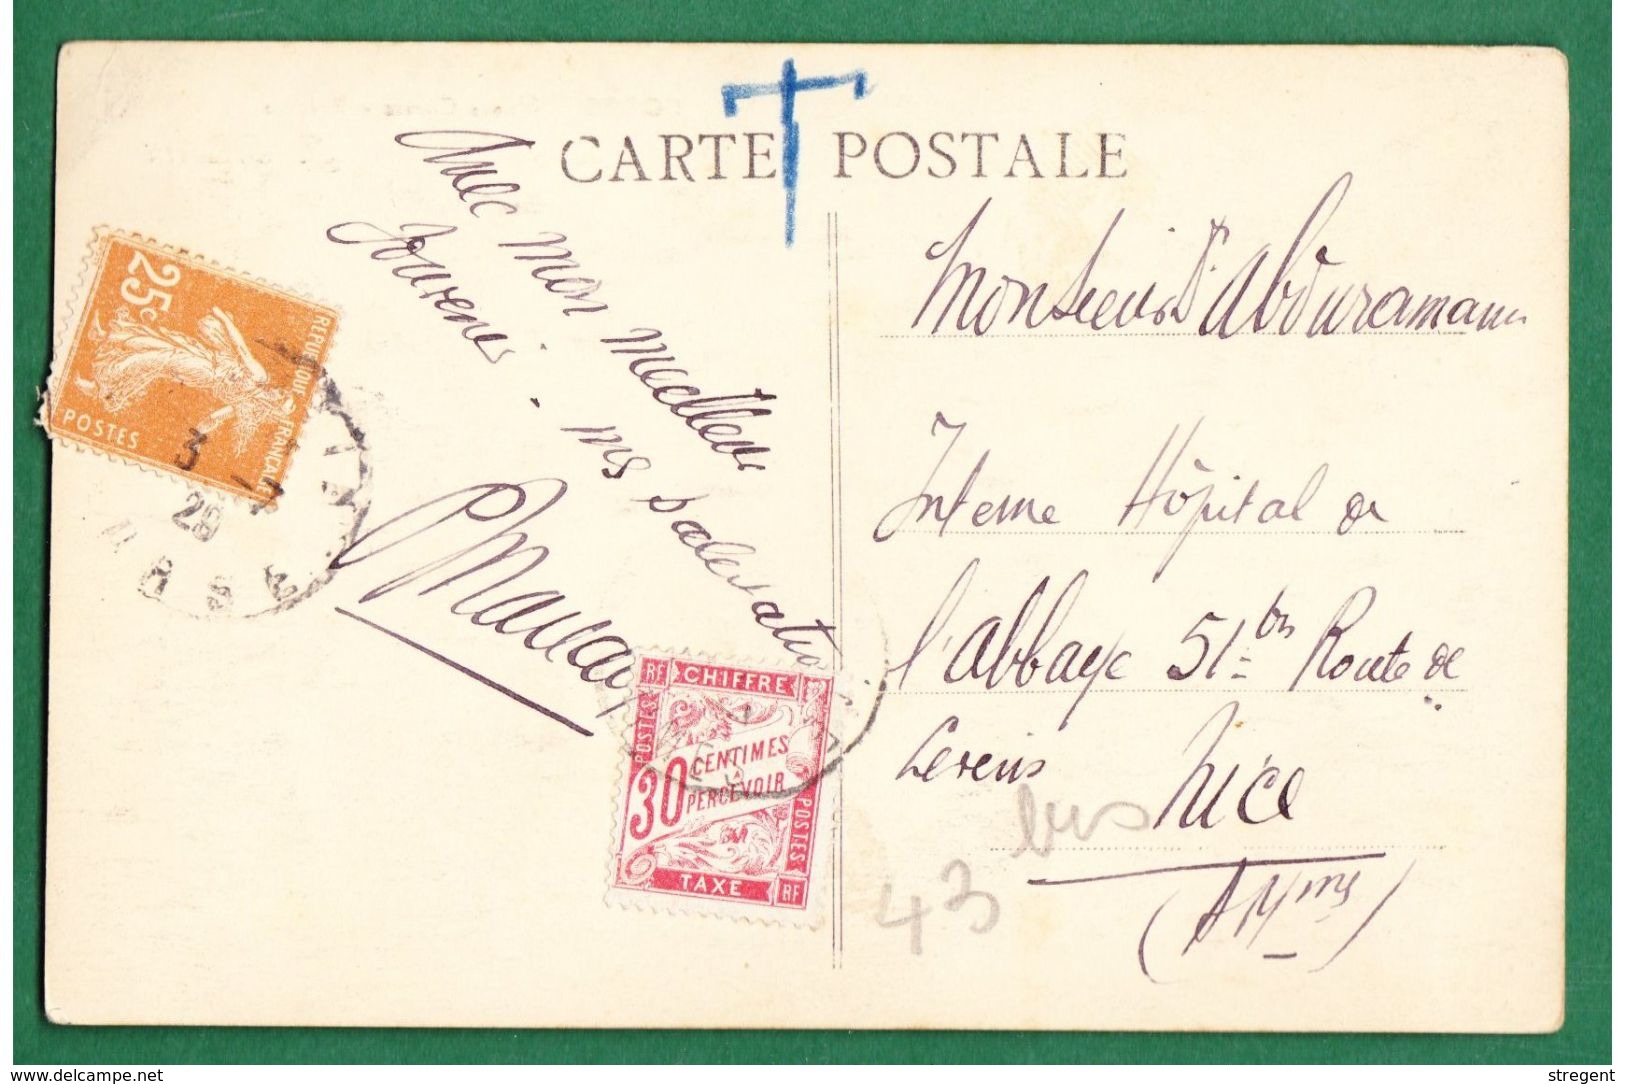 T
CARTE POSTALE
Avec mon meilleur
souvenir. mes salutations
25c
REPUBLIQUE FRANÇAISE
POSTES
3
Monsieur Abduramann
Interne Hôpital de
l'abbaye 51 bis Route de
Lerens
Nice
(A Mmes)
43 bis
RF CHIFFRE
POSTES
30 CENTIMES
A
PERCEVOIR
POSTES
TAXE RF
www.delcampe.net
stregent